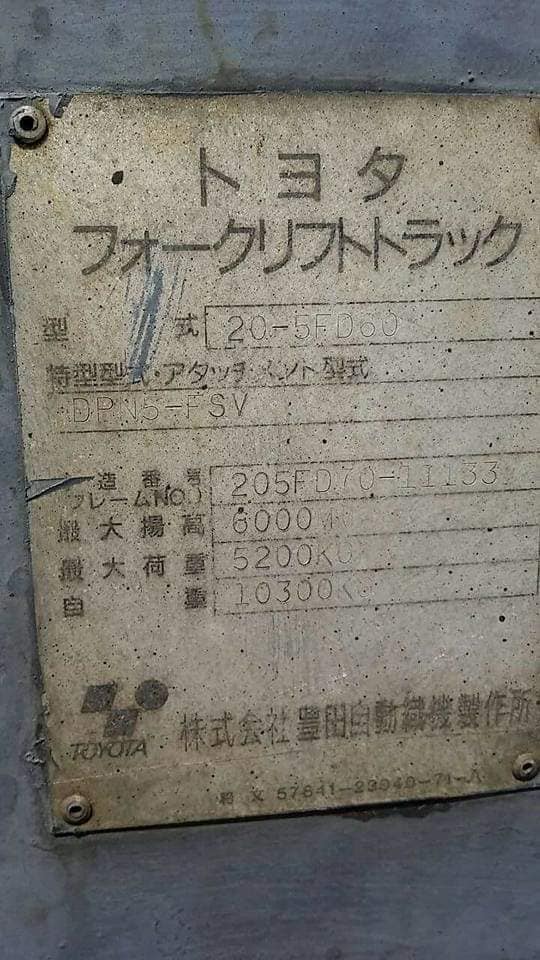 トヨタ
フォークリフトトラック
型 式 20-5FD60
特型型式・アタッチメント型式
DPN5-FSV
造番号 205FD70-11133
フレームNO.
最大揚高 6000
最大荷重 5200K
自重 10300K
TOYOTA 株式会社豊田自動織機製作所